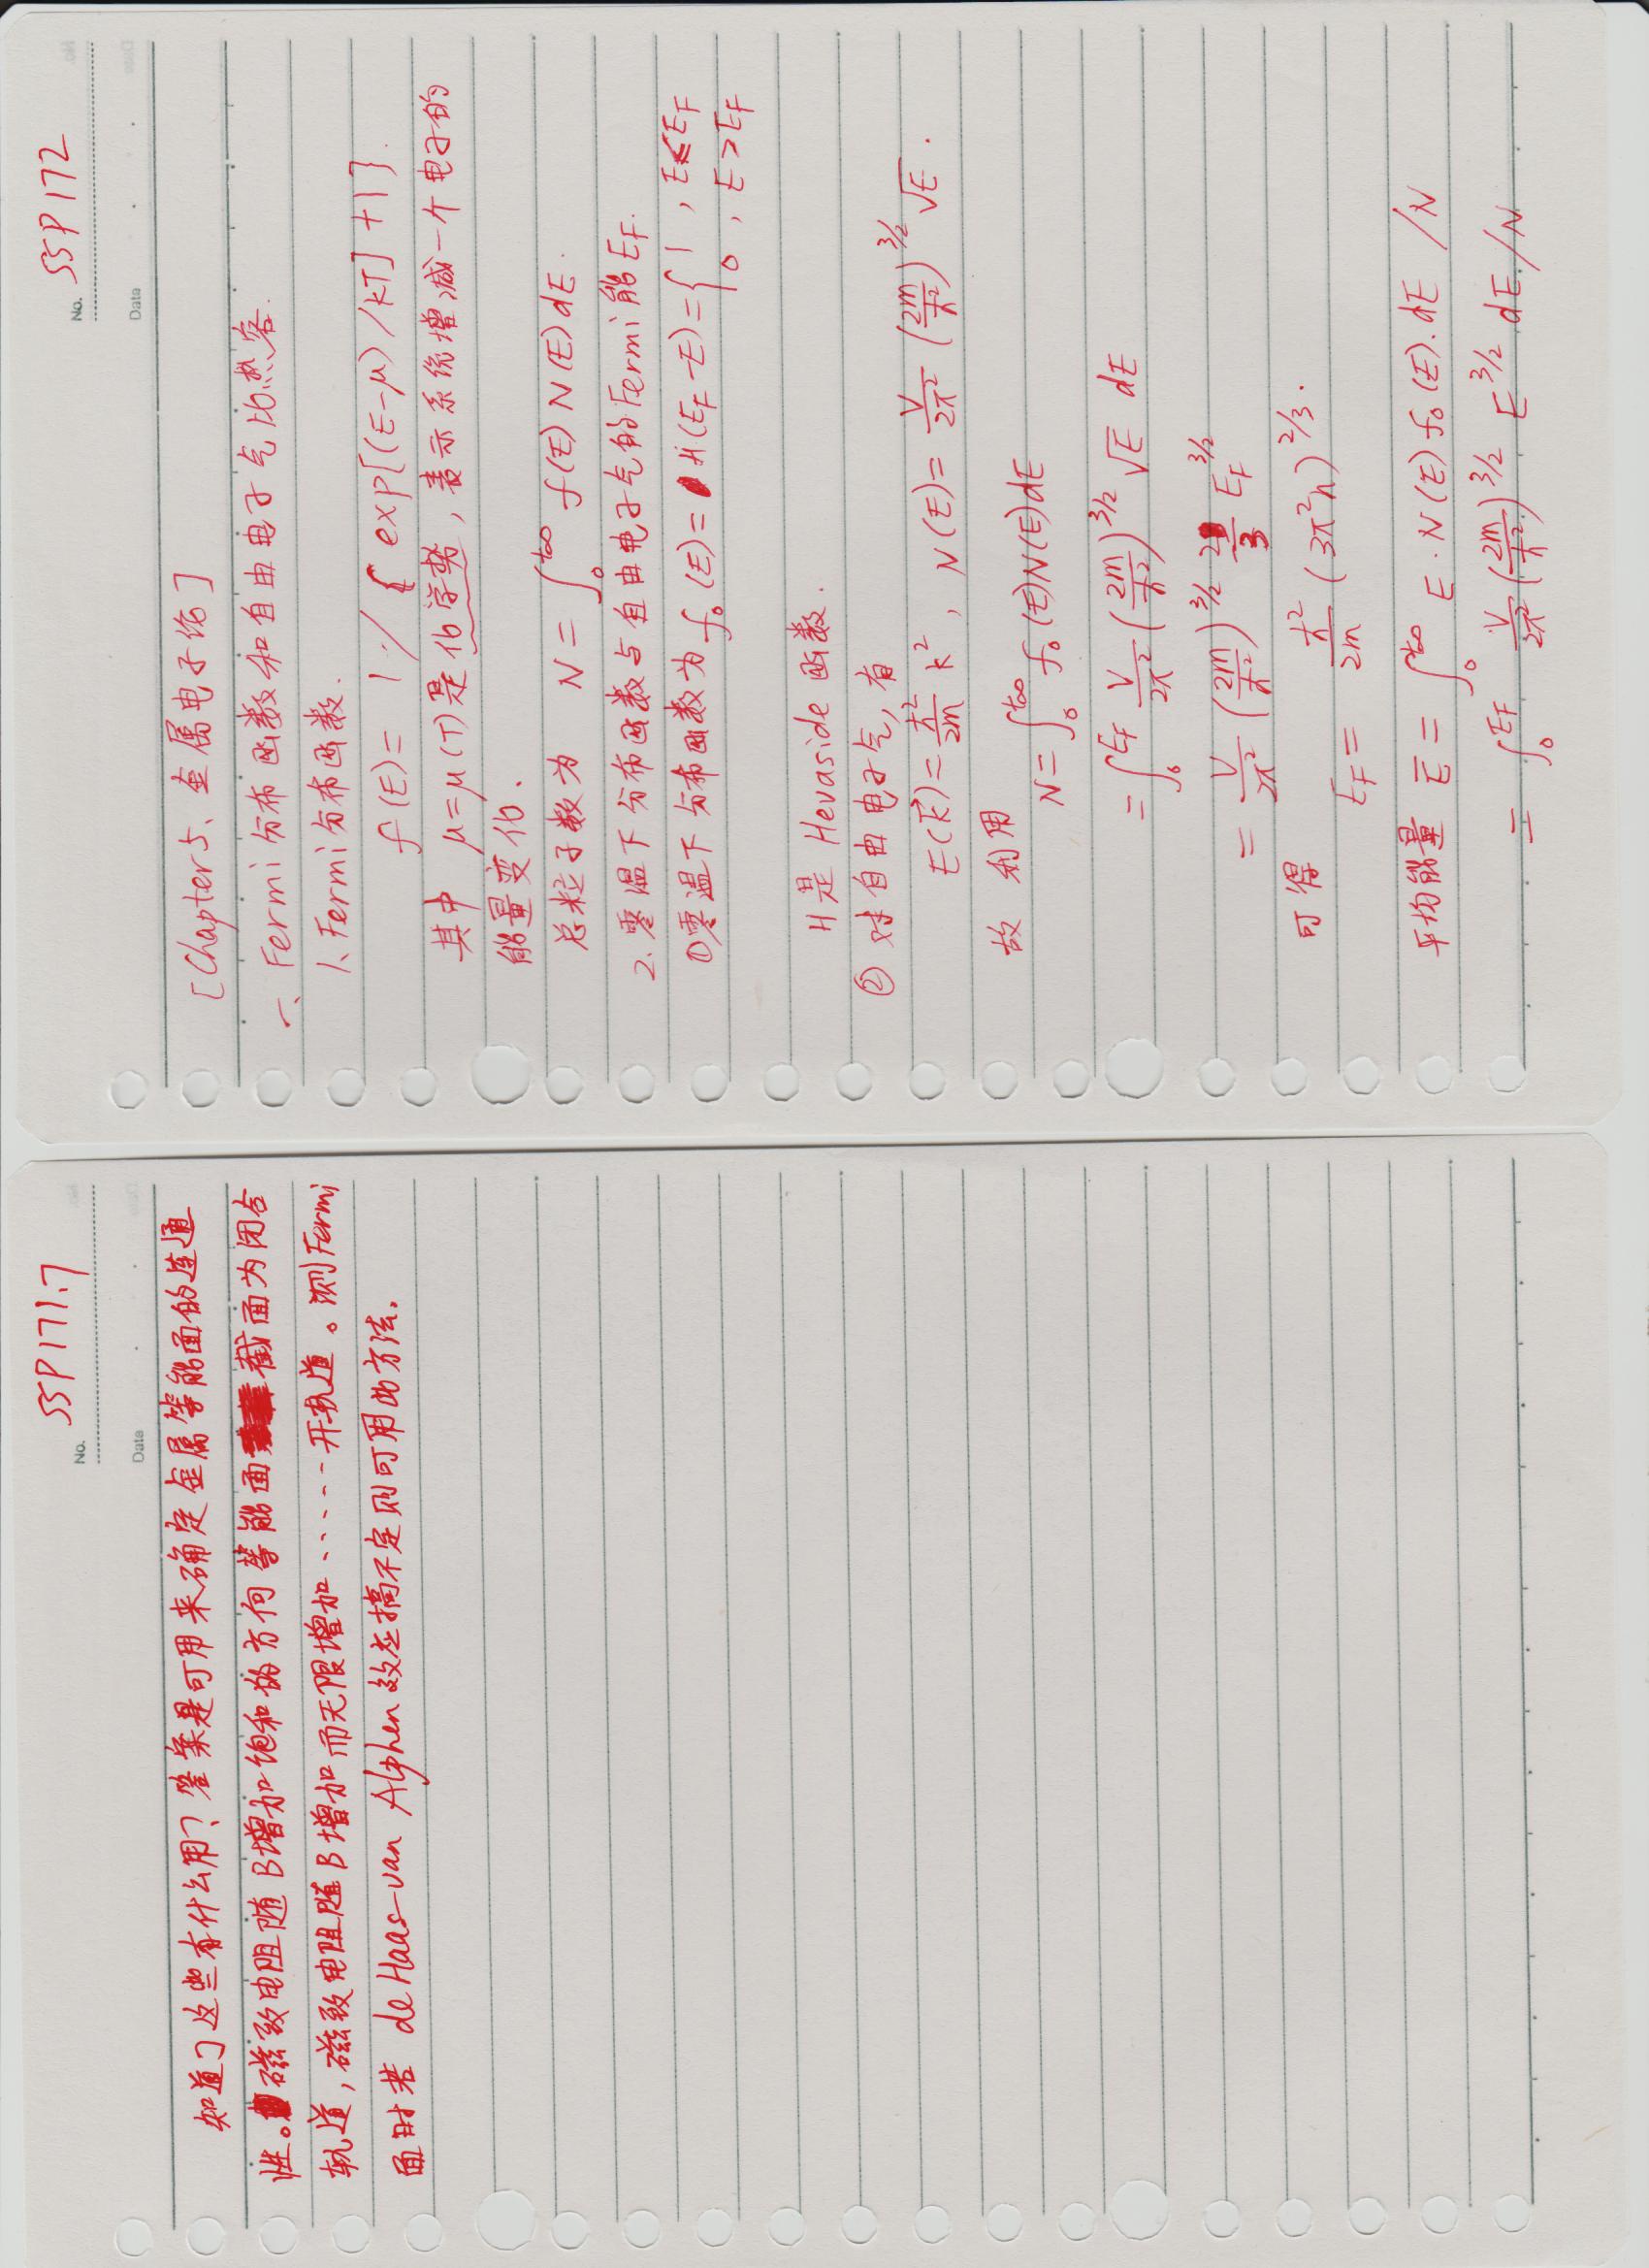 No. SSP171.7
Date
知道了这些有什么用？答案是可用来确定金属等能面的连通
性。磁致电阻随B增加饱和的方向等能面截面为闭合
轨道，磁致电阻随B增加而无限增加……开轨道。测Fermi
面时若 de Haas-van Alphen效应搞不定则可用此方法.
No. SSP172
Date
[Chapter5、金属电子论]
一、Fermi分布函数和自由电子气比热容.
1、Fermi分布函数.
f(E)= 1 / { exp[(E-μ)/kT]+1}.
其中 μ=μ(T)是化学势，表示系统增减一个电子的
能量变化.
总粒子数为 N = ∫₀^{+∞} f(E) N(E) dE.
2.零温下分布函数与自由电子气的Fermi能E_F.
①零温下分布函数为 f₀(E)= H(E_F-E)={ 1 , E≤E_F
0 , E>E_F
H是 Hevaside 函数.
② 对自由电子气,有
E(k⃗)= ħ²/2m k² , N(E)= V/2π² (2m/ħ²)^{3/2} √E .
故 利用
N=∫₀^{+∞} f₀(E)N(E)dE
=∫₀^{E_F} V/2π² (2m/ħ²)^{3/2} √E dE
= V/2π² (2m/ħ²)^{3/2} 2/3 E_F^{3/2}
可得
E_F= ħ²/2m (3π²n)^{2/3}.
平均能量 Ē = ∫₀^{+∞} E·N(E)f₀(E).dE /N
= ∫₀^{E_F} V/2π² (2m/ħ²)^{3/2} E^{3/2} dE/N